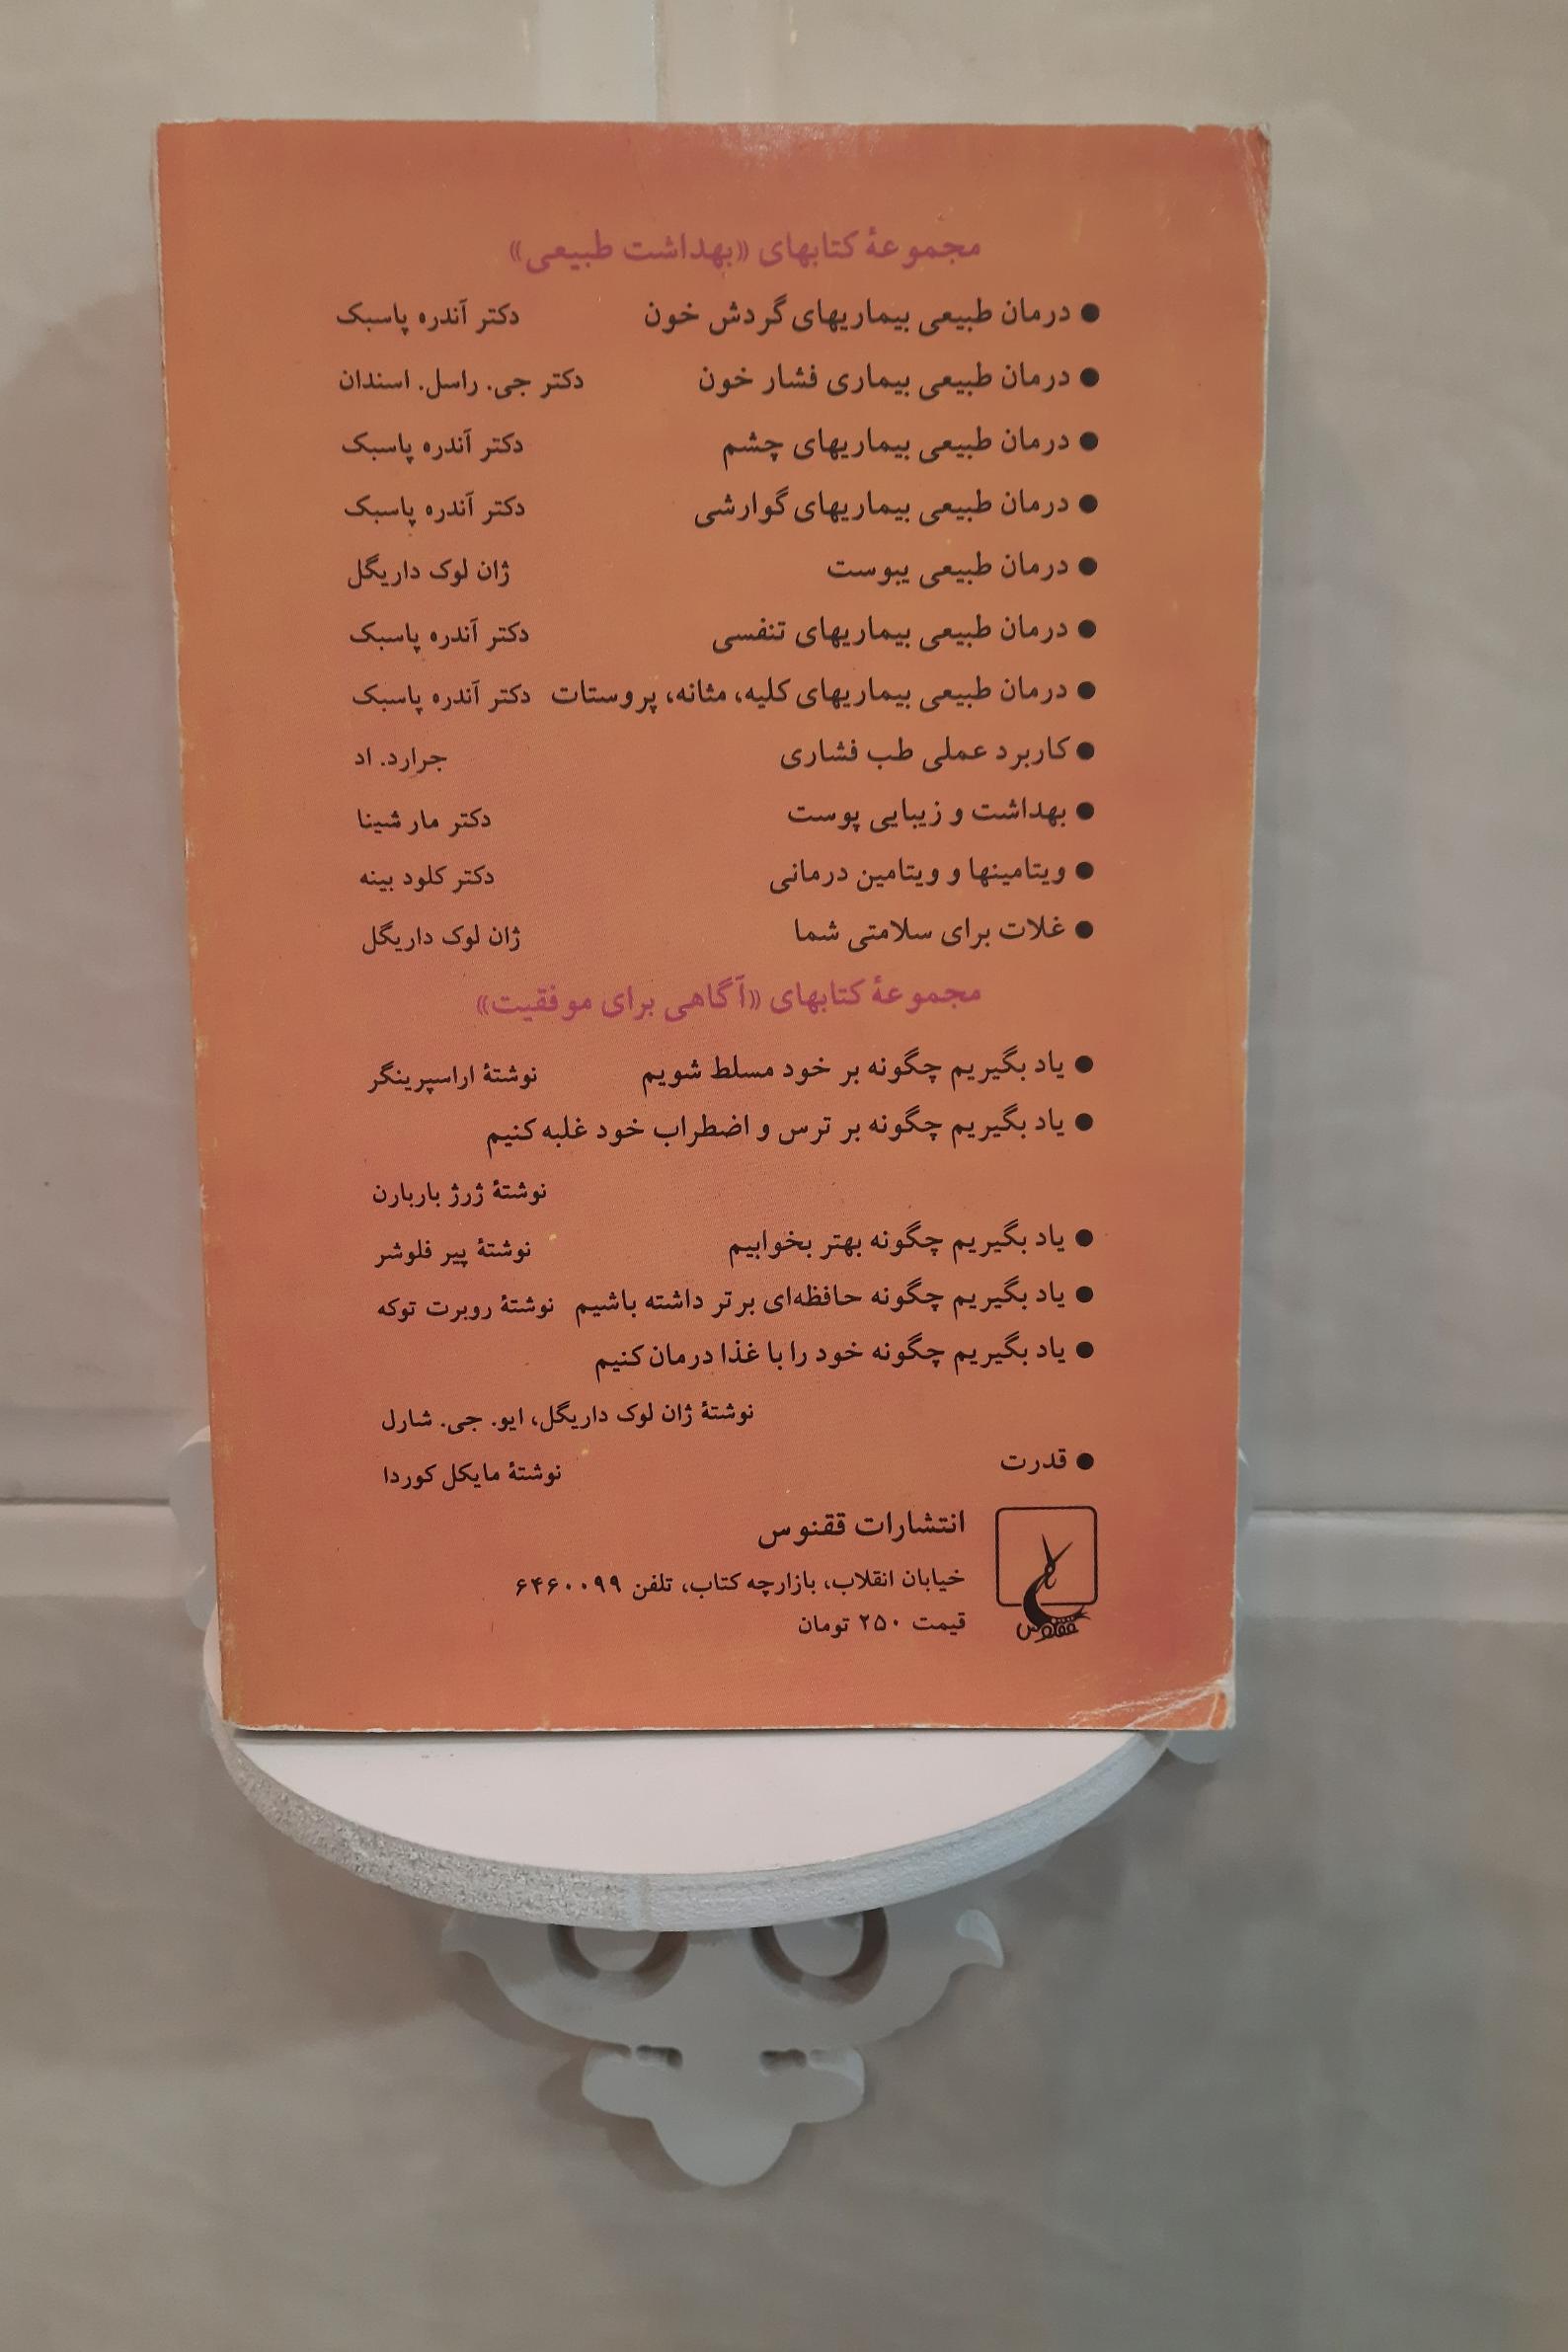 مجموعهٔ کتابهای «بهداشت طبیعی»
● درمان طبیعی بیماریهای گردش خون دکتر آندره پاسبک
● درمان طبیعی بیماری فشار خون دکتر جی. راسل. اسندان
● درمان طبیعی بیماریهای چشم دکتر آندره پاسبک
● درمان طبیعی بیماریهای گوارشی دکتر آندره پاسبک
● درمان طبیعی یبوست ژان لوک داریگل
● درمان طبیعی بیماریهای تنفسی دکتر آندره پاسبک
● درمان طبیعی بیماریهای کلیه، مثانه، پروستات دکتر آندره پاسبک
● کاربرد عملی طب فشاری جرارد. اد
● بهداشت و زیبایی پوست دکتر مار شینا
● ویتامینها و ویتامین درمانی دکتر کلود بینه
● غلات برای سلامتی شما ژان لوک داریگل
مجموعهٔ کتابهای «آگاهی برای موفقیت»
● یاد بگیریم چگونه بر خود مسلط شویم نوشتهٔ اراسپرینگر
● یاد بگیریم چگونه بر ترس و اضطراب خود غلبه کنیم
نوشتهٔ ژرژ باربارن
● یاد بگیریم چگونه بهتر بخوابیم نوشتهٔ پیر فلوشر
● یاد بگیریم چگونه حافظه‌ای برتر داشته باشیم نوشتهٔ روبرت توکه
● یاد بگیریم چگونه خود را با غذا درمان کنیم
نوشتهٔ ژان لوک داریگل، ایو. جی. شارل
● قدرت نوشتهٔ مایکل کوردا
انتشارات ققنوس
خیابان انقلاب، بازارچه کتاب، تلفن ۶۴۶۰۰۹۹
قیمت ۲۵۰ تومان
ققنوس